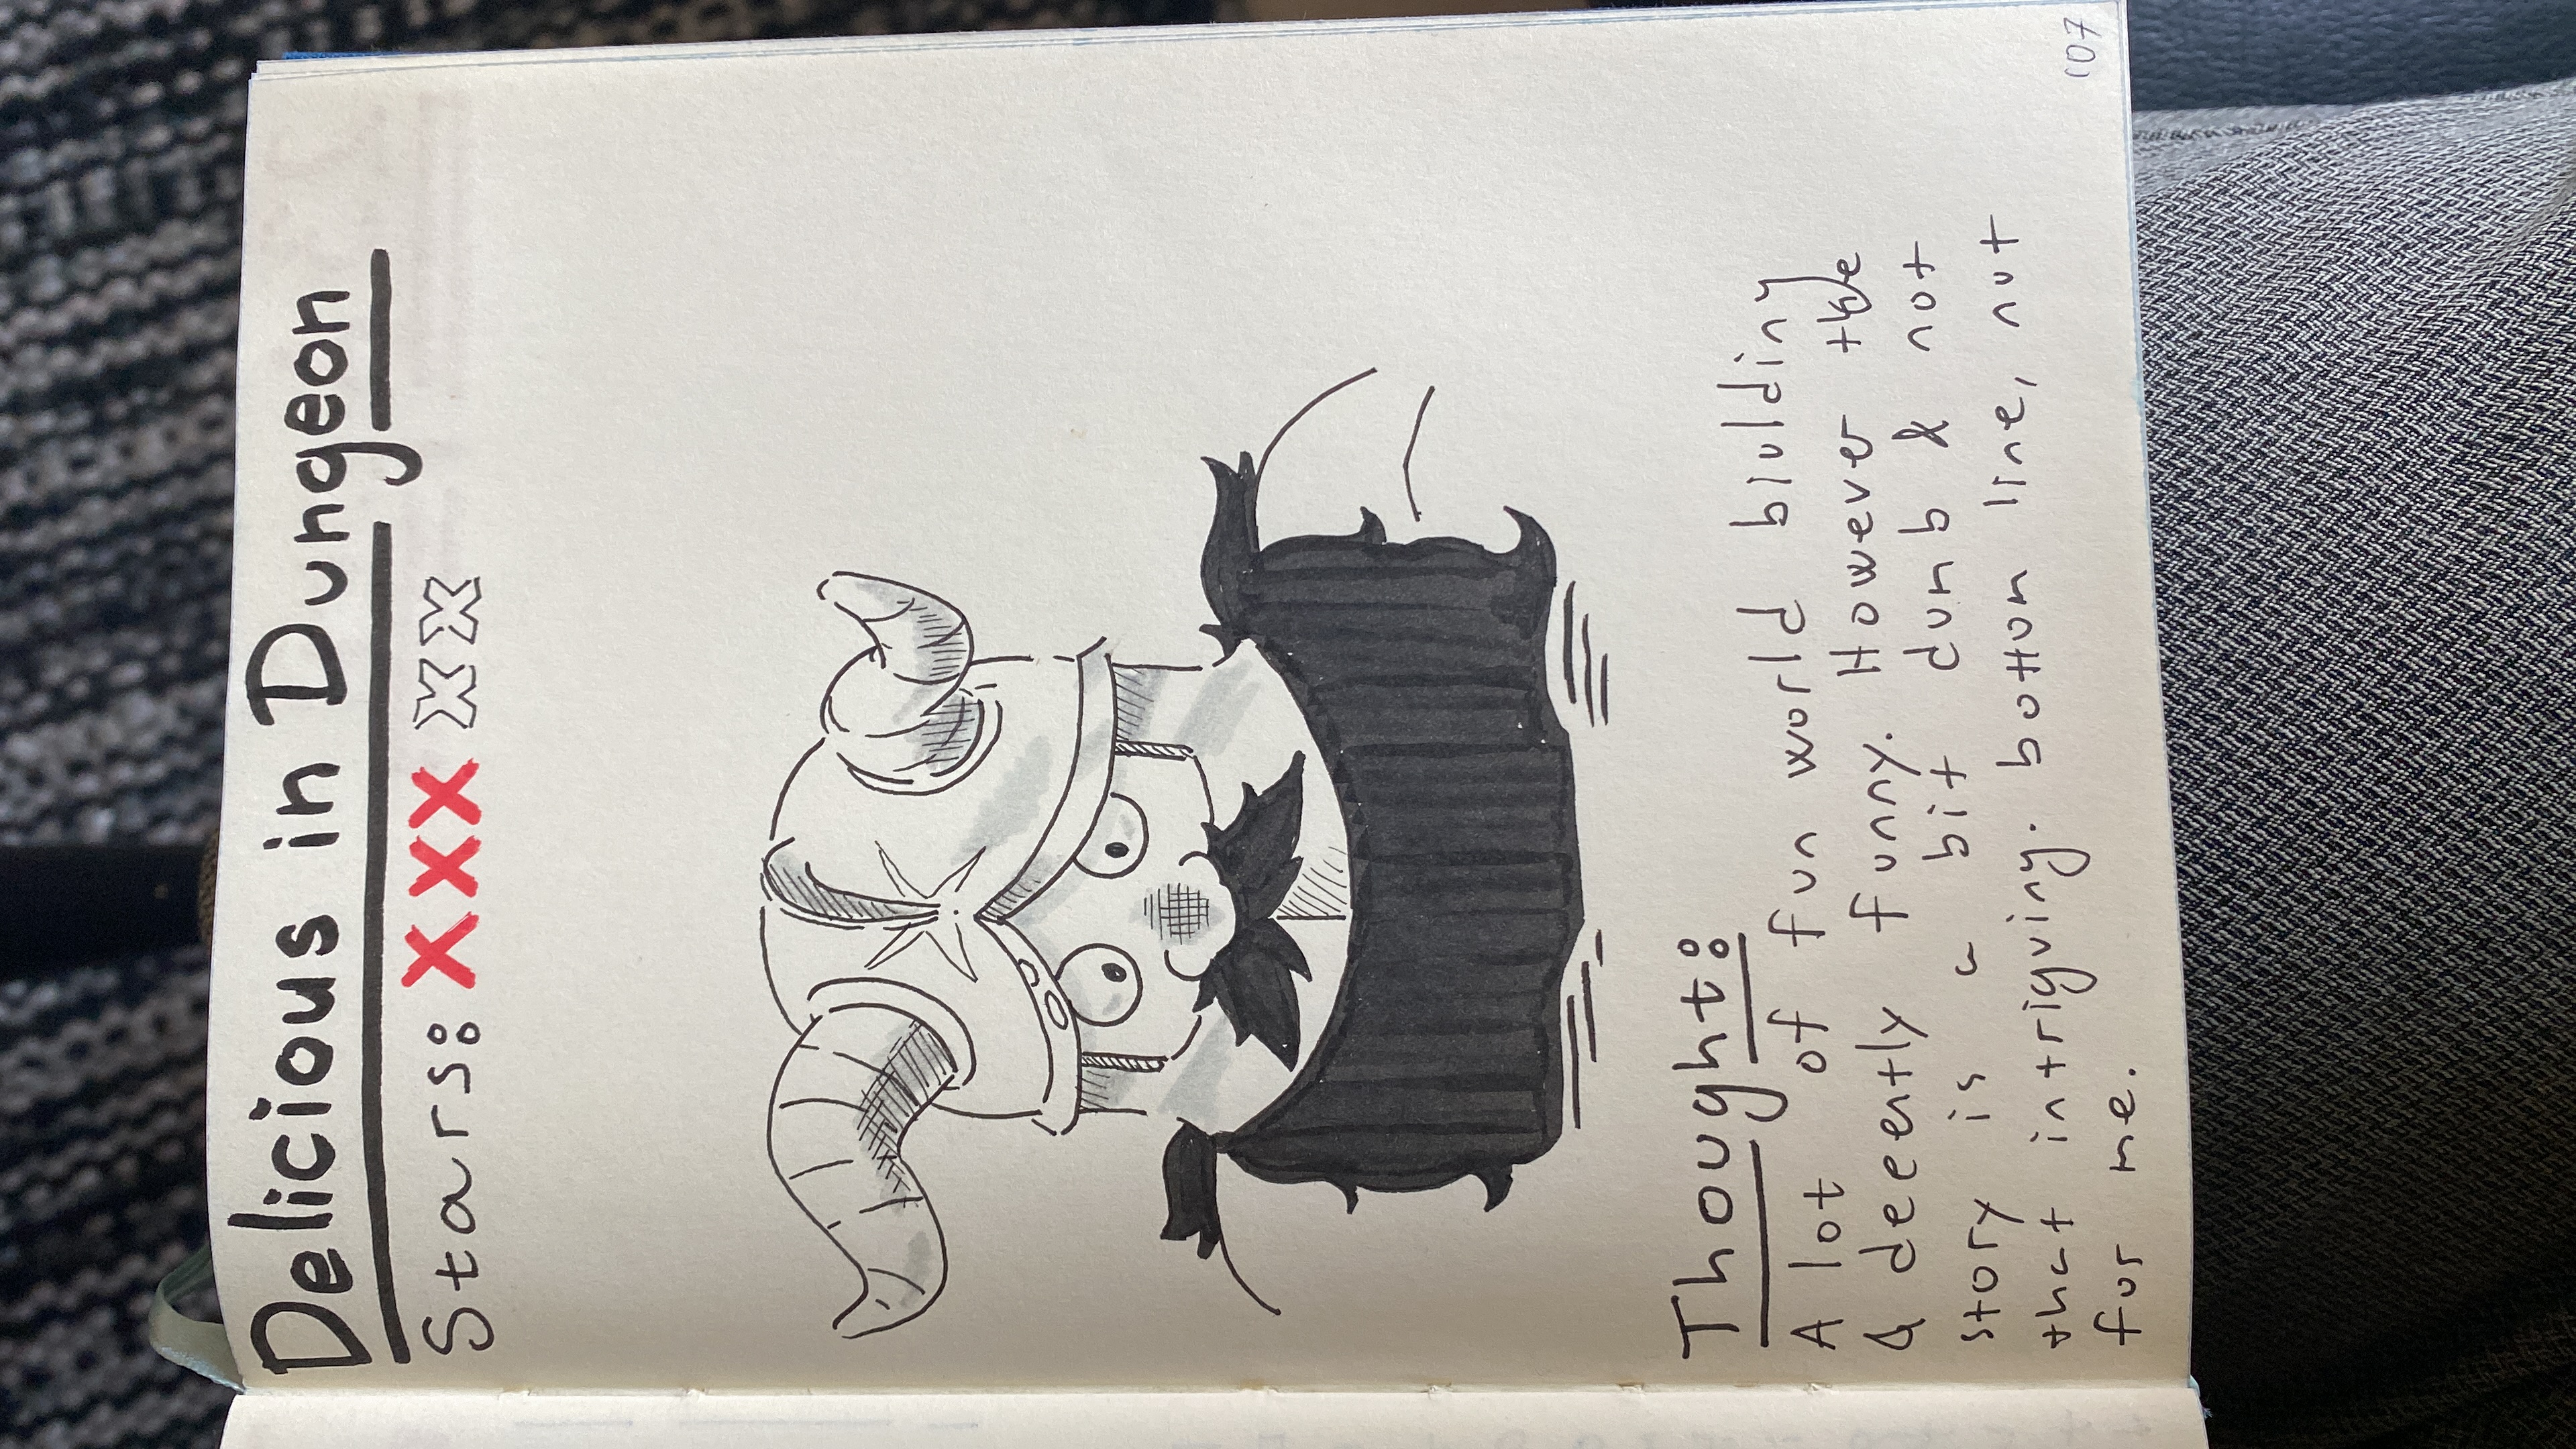 Delicious in Dungeon
Stars: XXX XX
Thought:
A lot of fun world bluilding
& deecently funny. However the
story is a bit dumb & not
that intriguing. bottom line, not
for me.
107